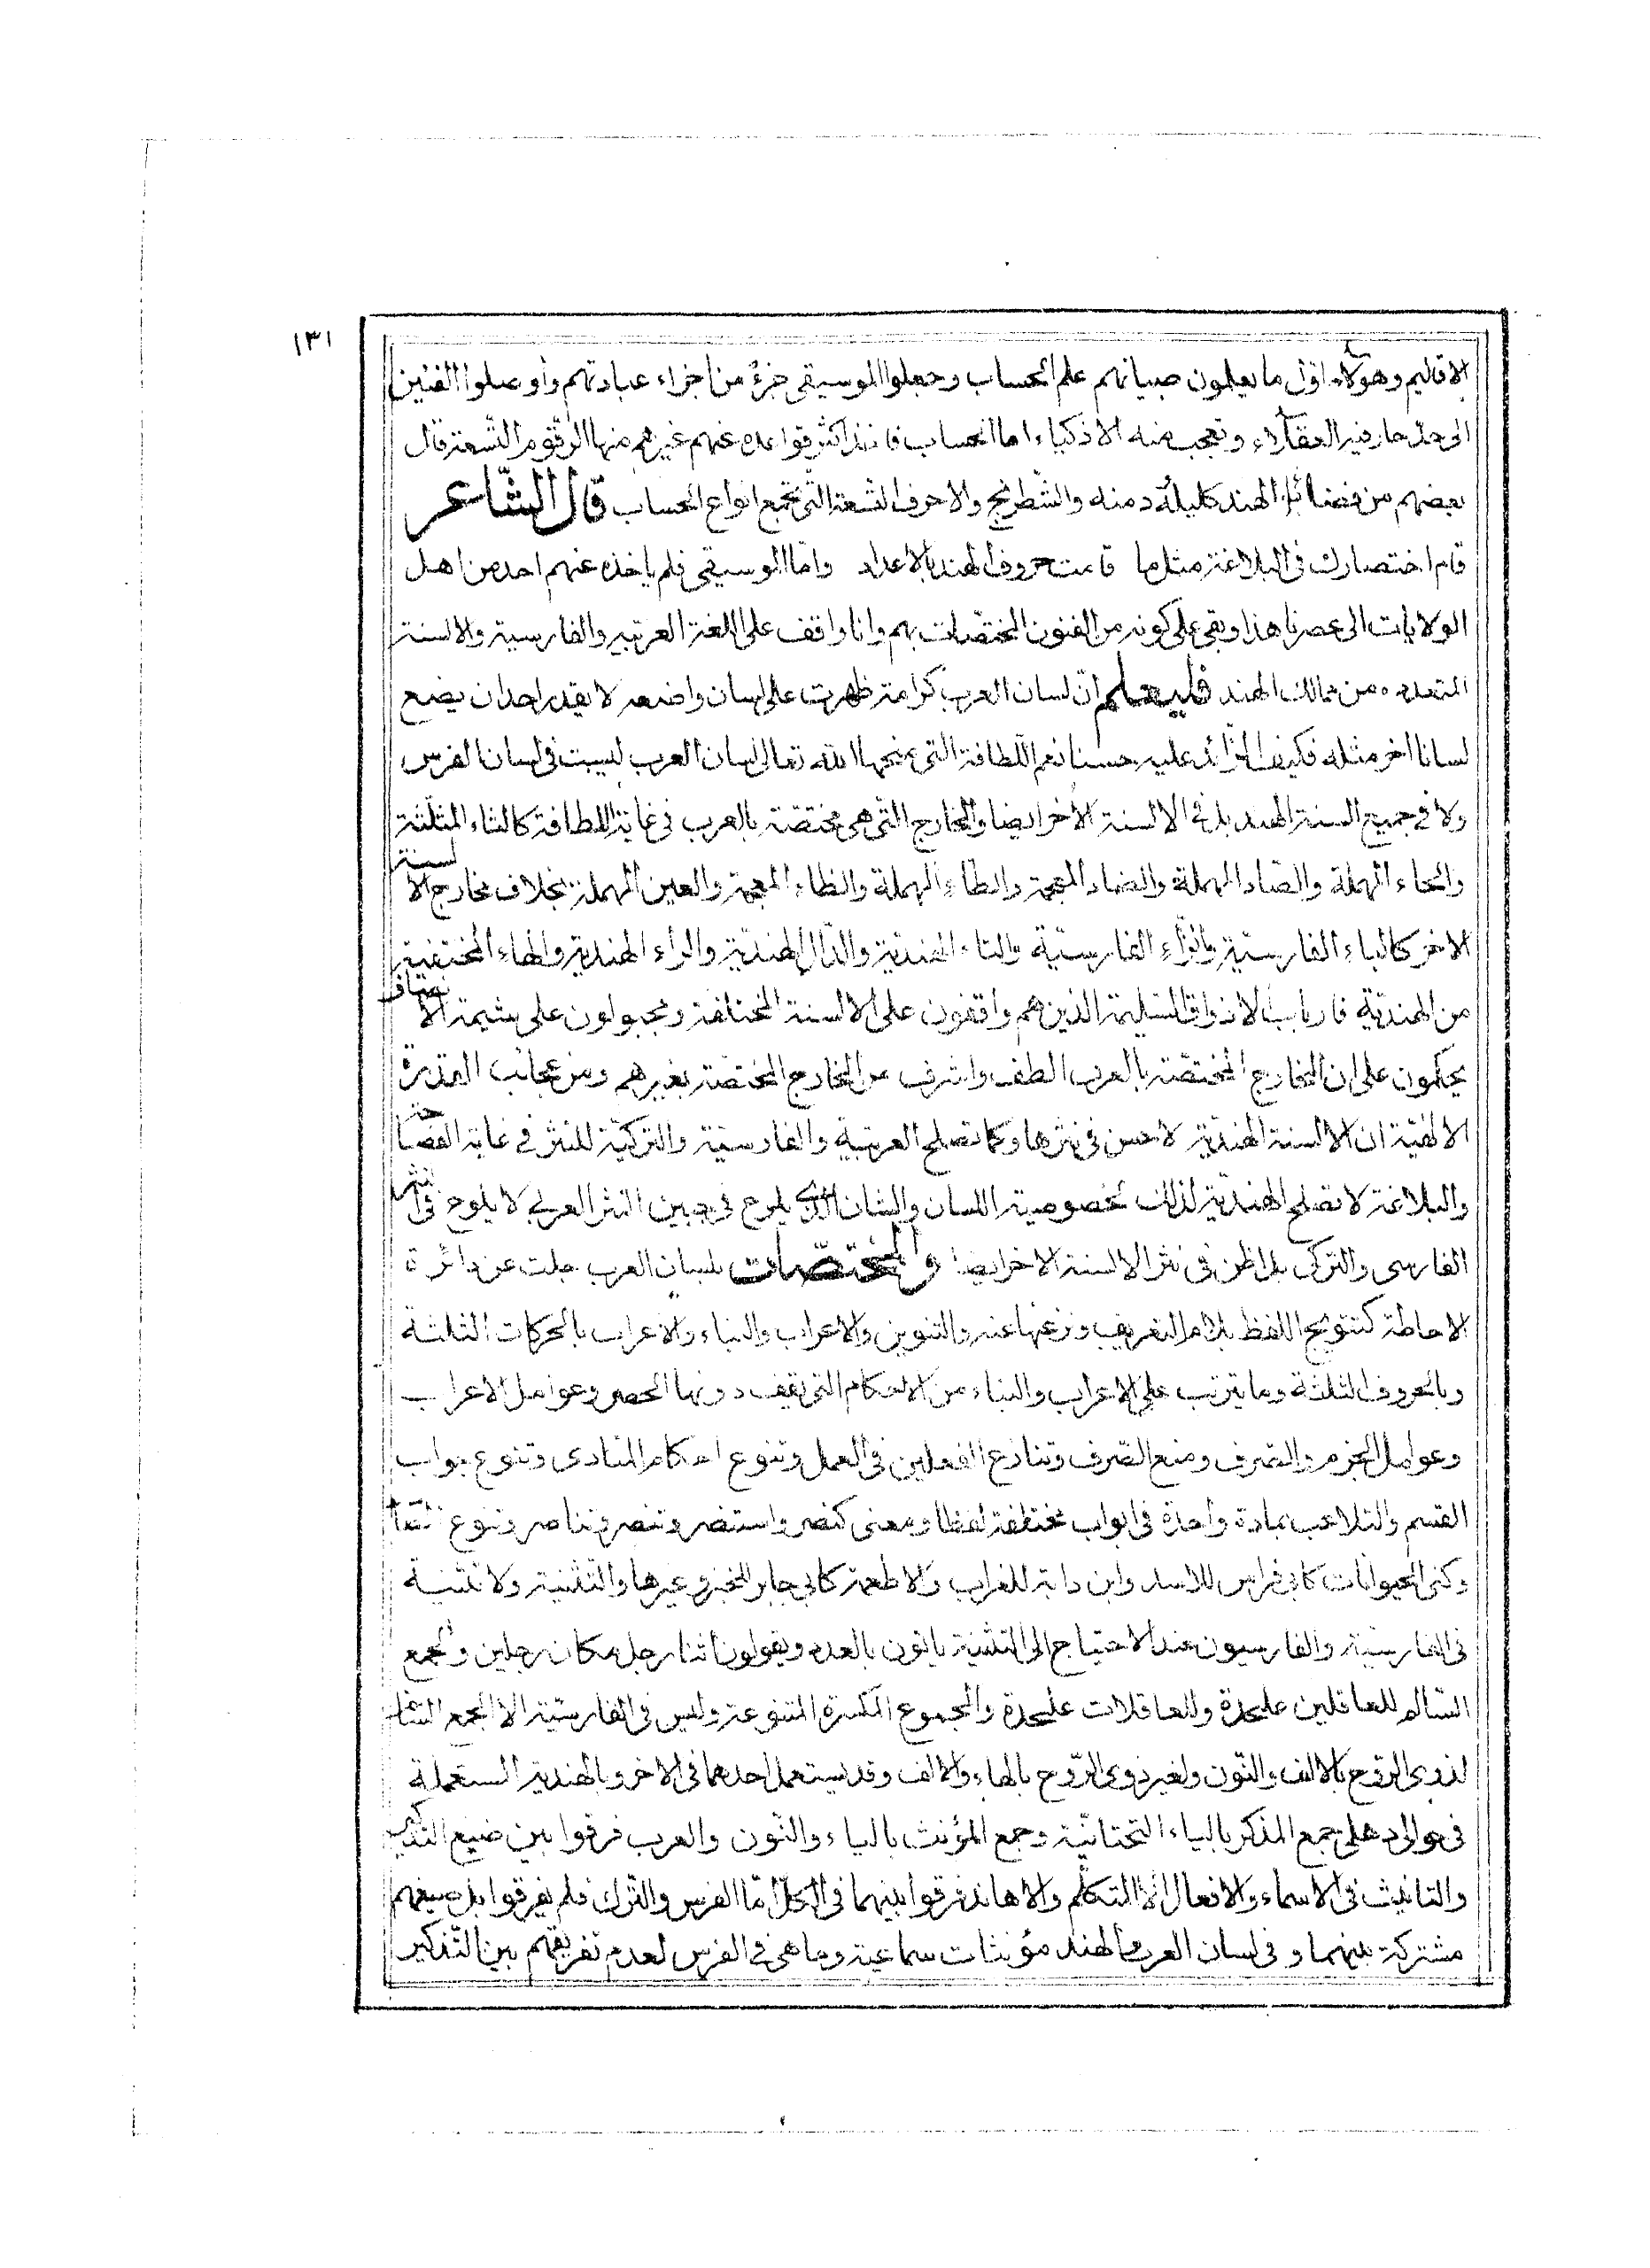 ١٣١
الاقاليم وهولاء اوّل ما يعلمون صبيانهم علم الحساب وجعلوا الموسيقى جزءً من اجزاء عبادتهم وأوصلوا الفنين
الى حدّ حار فيه العقلاء وتعجب منه الاذكياء اما الحساب فاخذ اكثر قواعده عنهم غيرهم منها الرقوم التّسعة قال
بعضهم من فضائل الهند كليلة ودمنه والشّطرنج والاحرف التسعة التّى تجمع انواع الحساب قال الشّاعر
قام اختصارك فى البلاغة مثل ما قامت حروف الهند بالاعداد وامّا الموسيقى فلم ياخذه عنهم احد من اهل
الولايات الى عصرنا هذا وبقى على كونه من الفنون المختصّات بهم وانا واقف على اللغة العربيه والفارسية والالسنة
المتعدده من ممالك الهند فليعلم انّ لسان العرب كرامة ظهرت على لسان واضعه لا يقدر احد ان يضع
لسانا اخر مثله فكيف الزائد عليه حسنا نعم اللّطافة التى منحها الله تعالى لسان العرب ليست فى لسان الفرس
ولا فى جميع السنة الهند بل فى الالسنة الأخر ايضا والمخارج التّى هى مختصّة بالعرب فى غاية اللطافة كالثاء المثلّثة
والحاء المهملة والصّاد المهملة والضاد المعجمة والطّاء المهملة والظاء المعجمة والعين المهملة بخلاف مخارج الالسنة
الاخر كالباء الفارسيّة والزّاء الفارسيّة والتاء الهنديّة والدّال الهنديّة والراء الهندية والهاء المختفية
من الهنديّة فارباب الاذواق السّليمة الذين هم واقفون على الالسنة المختلفة ومجبولون على شيمة الانصاف
يحكمون على ان المخارج المختصّة بالعرب الطف واشرف من المخارج المختصّة بغيرهم ومن عجائب القدرة
الالٰهيّة ان الالسنة الهنديّة لا حسن فى نثرها وكما تصلح العربيّة والفارسيّة والتركيّة للنثر فى غاية الفصاحة
والبلاغة لا تصلح الهنديّة لذلك لخصوصية اللسان والشان الذى يلوح فى جبين النثر العربى لا يلوح فى النثر
الفارسى والتركى بل اظن فى نثر الالسنة الاخر ايضا والمختصّات بلسان العرب جلت عن دائرة
الاحاطة كتتويج اللفظ بلام التعريف ونزعها عنه والتنوين والاعراب والبناء والاعراب بالحركات الثلثة
وبالحروف الثلثة وما يترتب على الاعراب والبناء من الاحكام التى يقف دونها الحصر وعوامل الاعراب
وعوامل الجزم والصّرف ومنع الصّرف وتنازع الفعلين فى العمل وتنوع احكام المنادى وتنوع جواب
القسم والتلاعب بمادة واحدة فى ابواب مختلفة لفظا ومعنى كنصر واستنصر وتنصر وتناصر وتنوع
وكنى الحيوانات كابى فراس للاسد وابن داية للغراب والاطعمة كابى جابر للخبز وغيرها والتّثنية ولا تثنية
فى الفارسيّة والفارسيون عند الاحتياج الى التثنية ياتون بالعدد ويقولون اثنا رجل مكان رجلين والجمع
السّالم للعاقلين عليحدة وللعاقلات عليحدة والجموع المكسّرة المتنوعة وليس فى الفارسيّة الا الجمع السّالم
لذوى الرّوح بالالف والنّون ولغير ذوى الرّوح بالهاء والالف وقد يستعمل احدهما فى الاخر وبالهندية المستعملة
فى حوالى دهلى جمع المذكر بالياء التحتانيّة وجمع المؤنث بالياء والنّون والعرب فرقوا بين صيغ التذكير
والتانيث فى الاسماء والافعال الّا المتكلّم والاهاند فرقوا بينهما فى الكلّ امّا الفرس والتّرك فلم يفرقوا بل صيغهم
مشتركة بينهما و فى لسان العرب والهند مؤنثات سماعية وما هى فى الفرس لعدم تفريقهم بين التّذكير